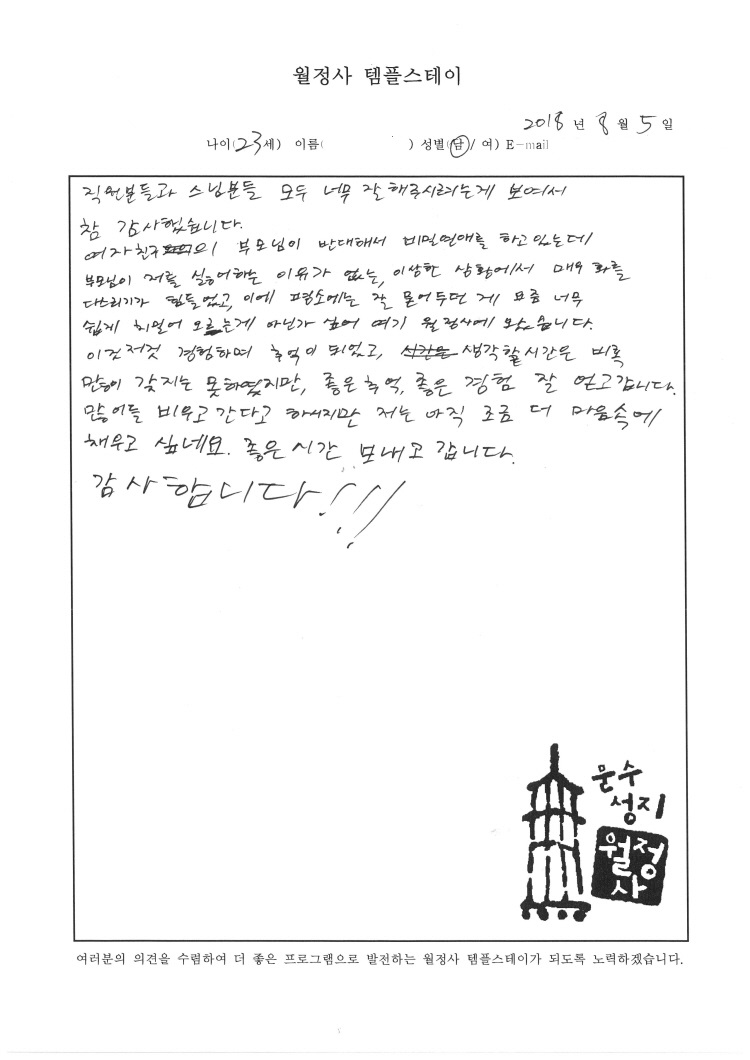 월정사 템플스테이
2018 년 8 월 5 일
나이(23세) 이름( ) 성별(남/ 여) E-mail
직원분들과 스님분들 모두 너무 잘해주시려는게 보여서
참 감사했습니다.
여자친구의 부모님이 반대해서 비밀연애를 하고있는데
부모님이 저를 싫어하는 이유가 없는, 이상한 상황에서 매우 화를
다스리기가 힘들었고, 이에 평소에는 잘 묻어두던 게 요즘 너무
쉽게 치밀어 오르는게 아닌가 싶어 여기 월정사에 왔습니다.
이것저것 경험하며 추억이 되었고, 시간은 생각할시간은 비록
많이 갖지는 못하였지만, 좋은추억, 좋은 경험 잘 얻고갑니다.
많이들 비우고 간다고 하시지만 저는 아직 조금 더 마음속에
채우고 싶네요. 좋은 시간 보내고 갑니다.
감사합니다!!!
문수
성지
월정
사
여러분의 의견을 수렴하여 더 좋은 프로그램으로 발전하는 월정사 템플스테이가 되도록 노력하겠습니다.